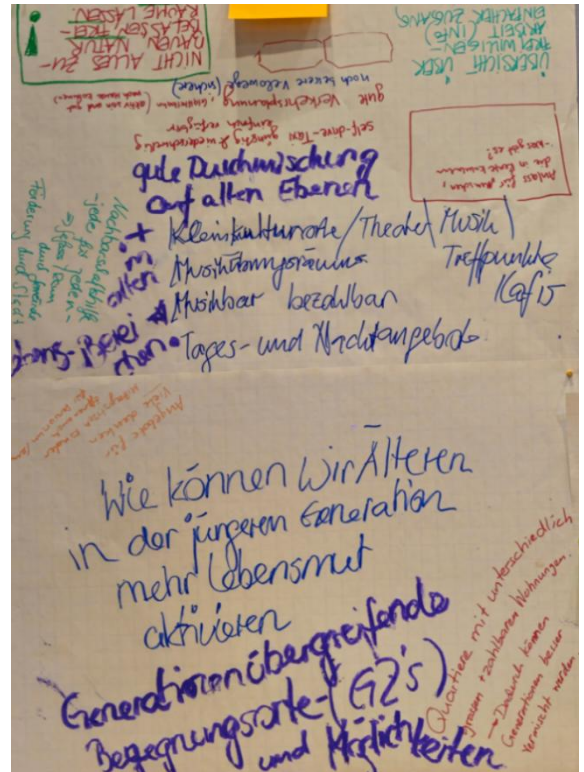 NICHT ALLES ZU-
BAUEN NATUR
BELASSEN FREI-
RÄUME LASSEN
ÜBERSICHT ÜBER
FREIWILLIGEN-
ARBEIT (INFO)
EINFACHER ZUGANG
gute Verkehrsplanung
noch bessere Velowege (sichere)
self-drive-Taxi günstig &
einfach verfügbar
Anlass für Menschen,
die in Rente kommen
- was gibt es?
gute Durchmischung
auf allen Ebenen
+ Kleinkulturorte/Theater/Musik
Treffpunkte
Kafis
Musikübungsräume
Musikbar bezahlbar
Tages- und Nachtangebote
Nachbarschaftshilfe
- jede für jeden -
Förderung durch
Stadt
Angebote für
Wie können wir Älteren
in der jüngeren Generation
mehr Lebensmut
aktivieren
Generationenübergreifende
Begegnungsorte - (GZ's)
und Möglichkeiten
Quartiere mit unterschiedlich
grossen + zahlbaren Wohnungen.
→ Dadurch können
Generationen besser
vermischt werden